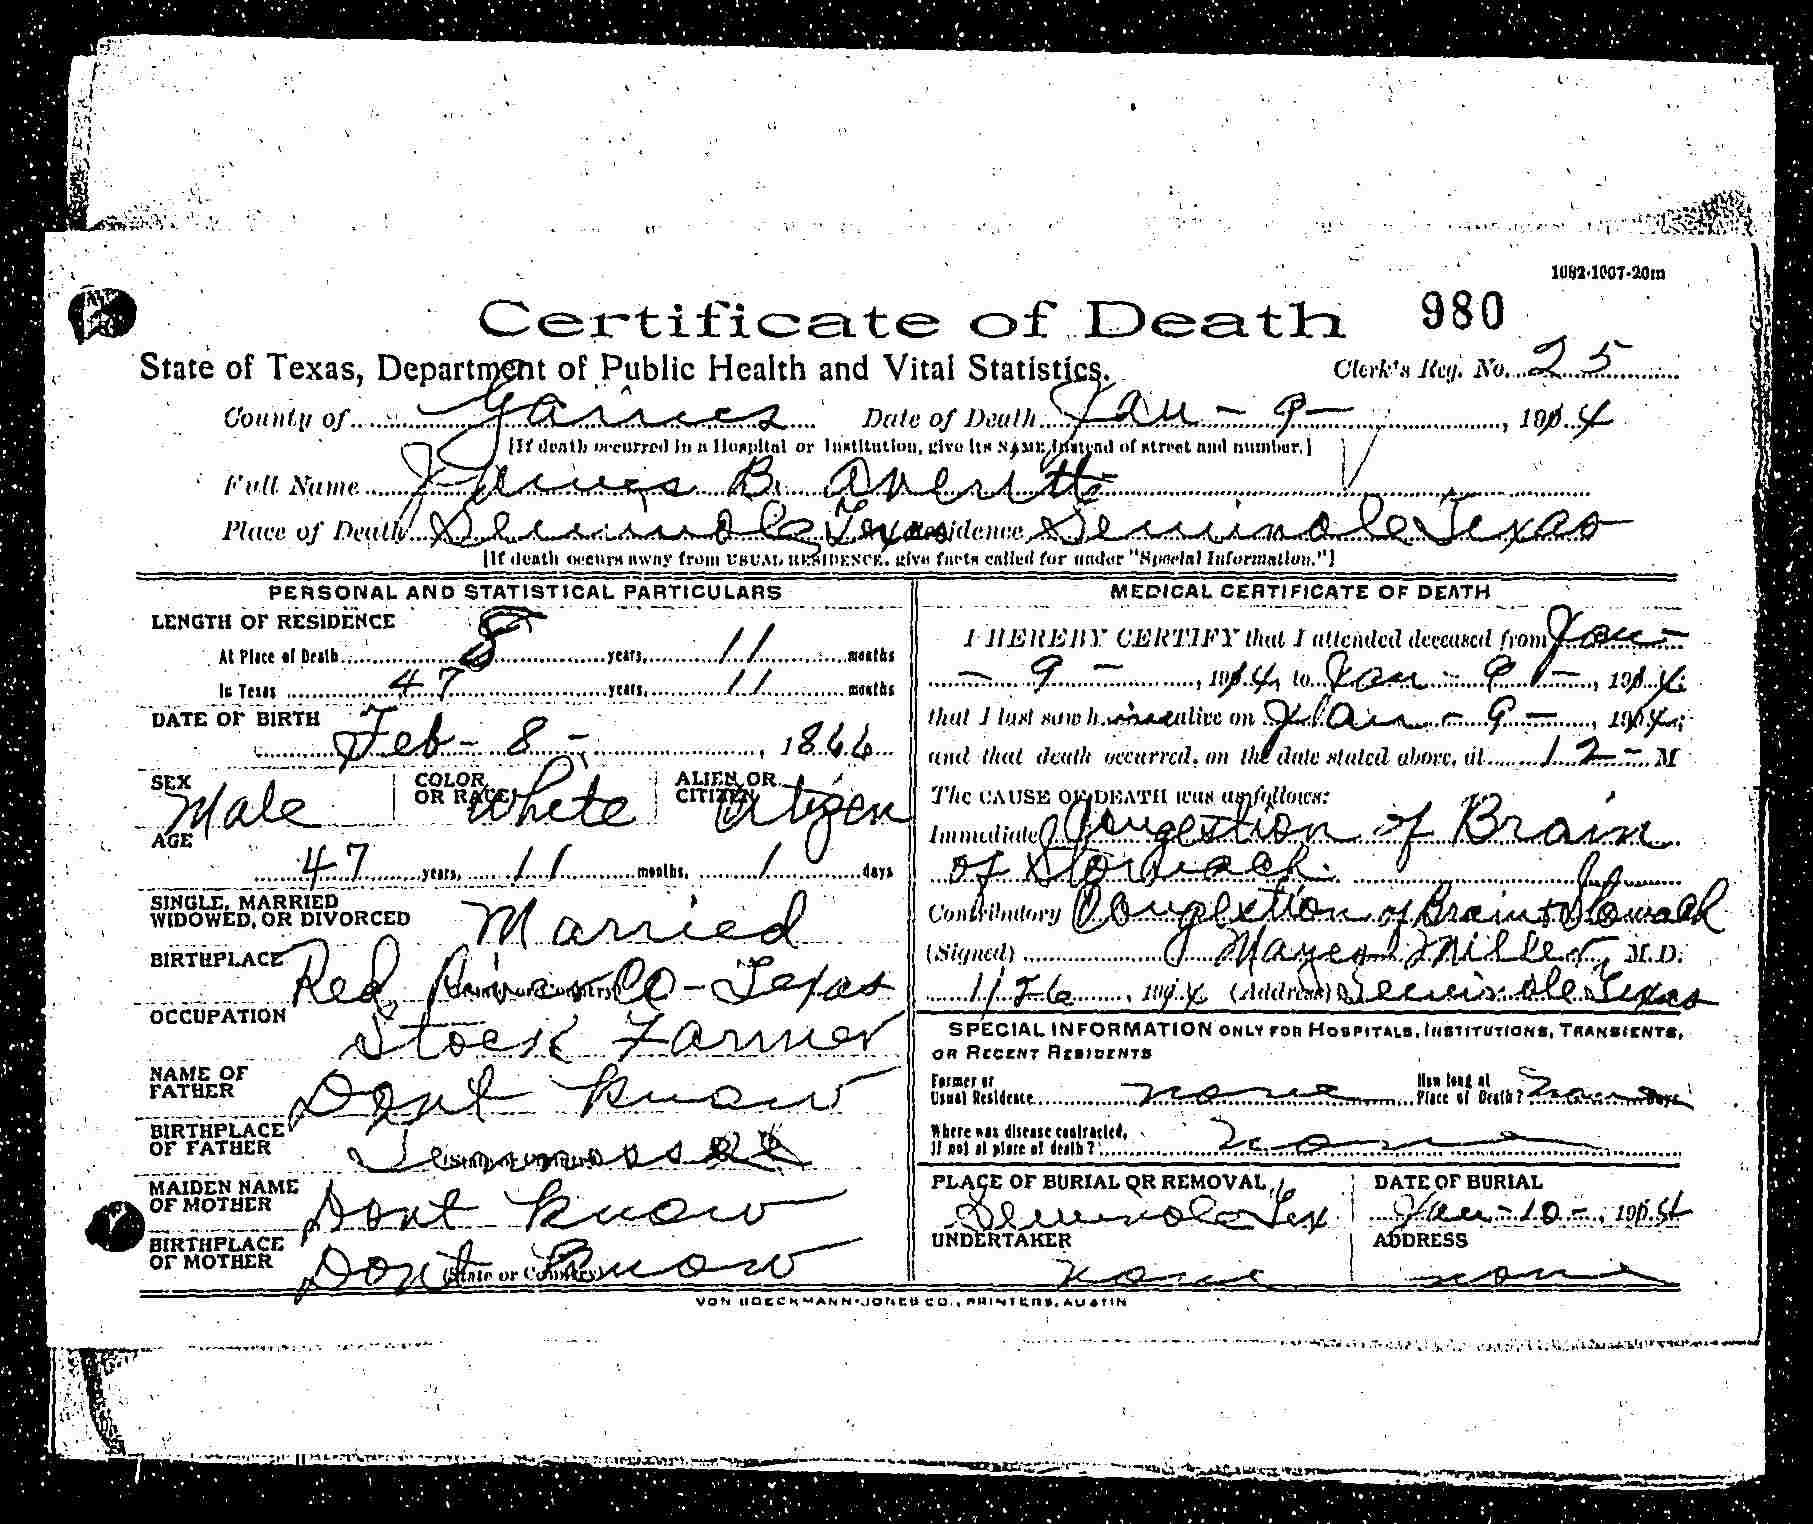 1082-1007-20m
Certificate of Death 980
State of Texas, Department of Public Health and Vital Statistics. Clerk's Reg. No. 25
County of Gaines Date of Death Jan - 9 - , 1914
[If death occurred in a Hospital or Institution, give its NAME instead of street and number.]
Full Name James B. Averitt
Place of Death Seminole Texas Residence Seminole Texas
[If death occurs away from USUAL RESIDENCE, give facts called for under "Special Information."]
PERSONAL AND STATISTICAL PARTICULARS
LENGTH OF RESIDENCE
At Place of Death 8 years, 11 months
In Texas 47 years, 11 months
DATE OF BIRTH
Feb - 8 - , 1866
SEX Male COLOR OR RACE White ALIEN OR CITIZEN Citizen
AGE
47 years, 11 months, 1 days
SINGLE, MARRIED
WIDOWED, OR DIVORCED Married
BIRTHPLACE Red River Co - Texas
(State or Country)
OCCUPATION Stock Farmer
NAME OF
FATHER Dont Know
BIRTHPLACE
OF FATHER Tennessee
(State or Country)
MAIDEN NAME
OF MOTHER Dont Know
BIRTHPLACE
OF MOTHER Dont Know
(State or Country)
MEDICAL CERTIFICATE OF DEATH
I HEREBY CERTIFY that I attended deceased from Jan -
- 9 - , 1914, to Jan - 9 - , 1914;
that I last saw him alive on Jan - 9 - , 1914;
and that death occurred, on the date stated above, at 12 - M
The CAUSE OF DEATH was as follows:
Immediate Congestion of Brain
of Stomach.
Contributory Congestion of Brain & Stomach
(Signed) Mayes Miller, M.D.
1/26, 1914 (Address) Seminole Texas
SPECIAL INFORMATION ONLY FOR HOSPITALS, INSTITUTIONS, TRANSIENTS,
OR RECENT RESIDENTS
Former or
Usual Residence none How long at
Place of Death? none Days
Where was disease contracted,
If not at place of death? none
PLACE OF BURIAL OR REMOVAL DATE OF BURIAL
Seminole Tex Jan - 10 - , 1914
UNDERTAKER ADDRESS
none none
VON BOECKMANN-JONES CO., PRINTERS, AUSTIN